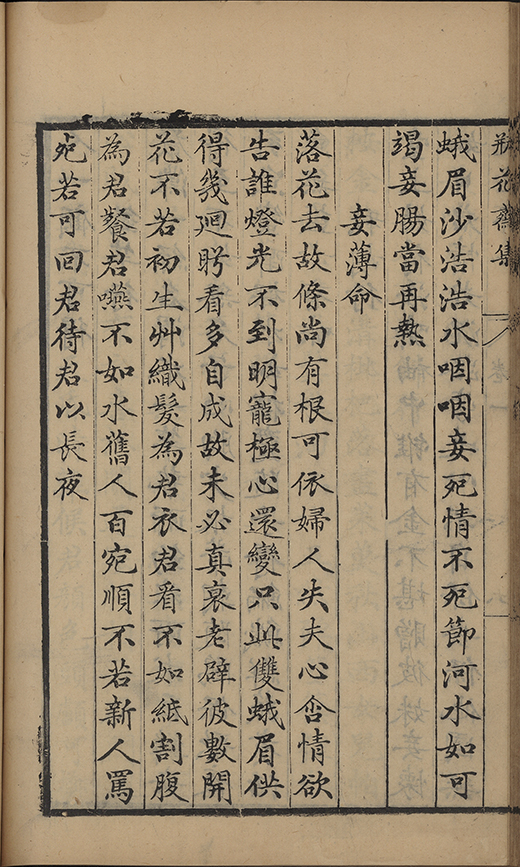 瓶花齋集 卷一
蛾眉沙浩浩水咽咽妾死情不死節河水如可
竭妾腸當再熱
妾薄命
落花去故條尚有根可依婦人失夫心含情欲
告誰燈光不到明寵極心還變只此雙蛾眉供
得幾廻盻看多自成故未必真衰老辟彼數開
花不若初生艸織髮為君衣君看不如紙割腹
為君餐君嚥不如水舊人百宛順不若新人罵
死若可回君待君以長夜